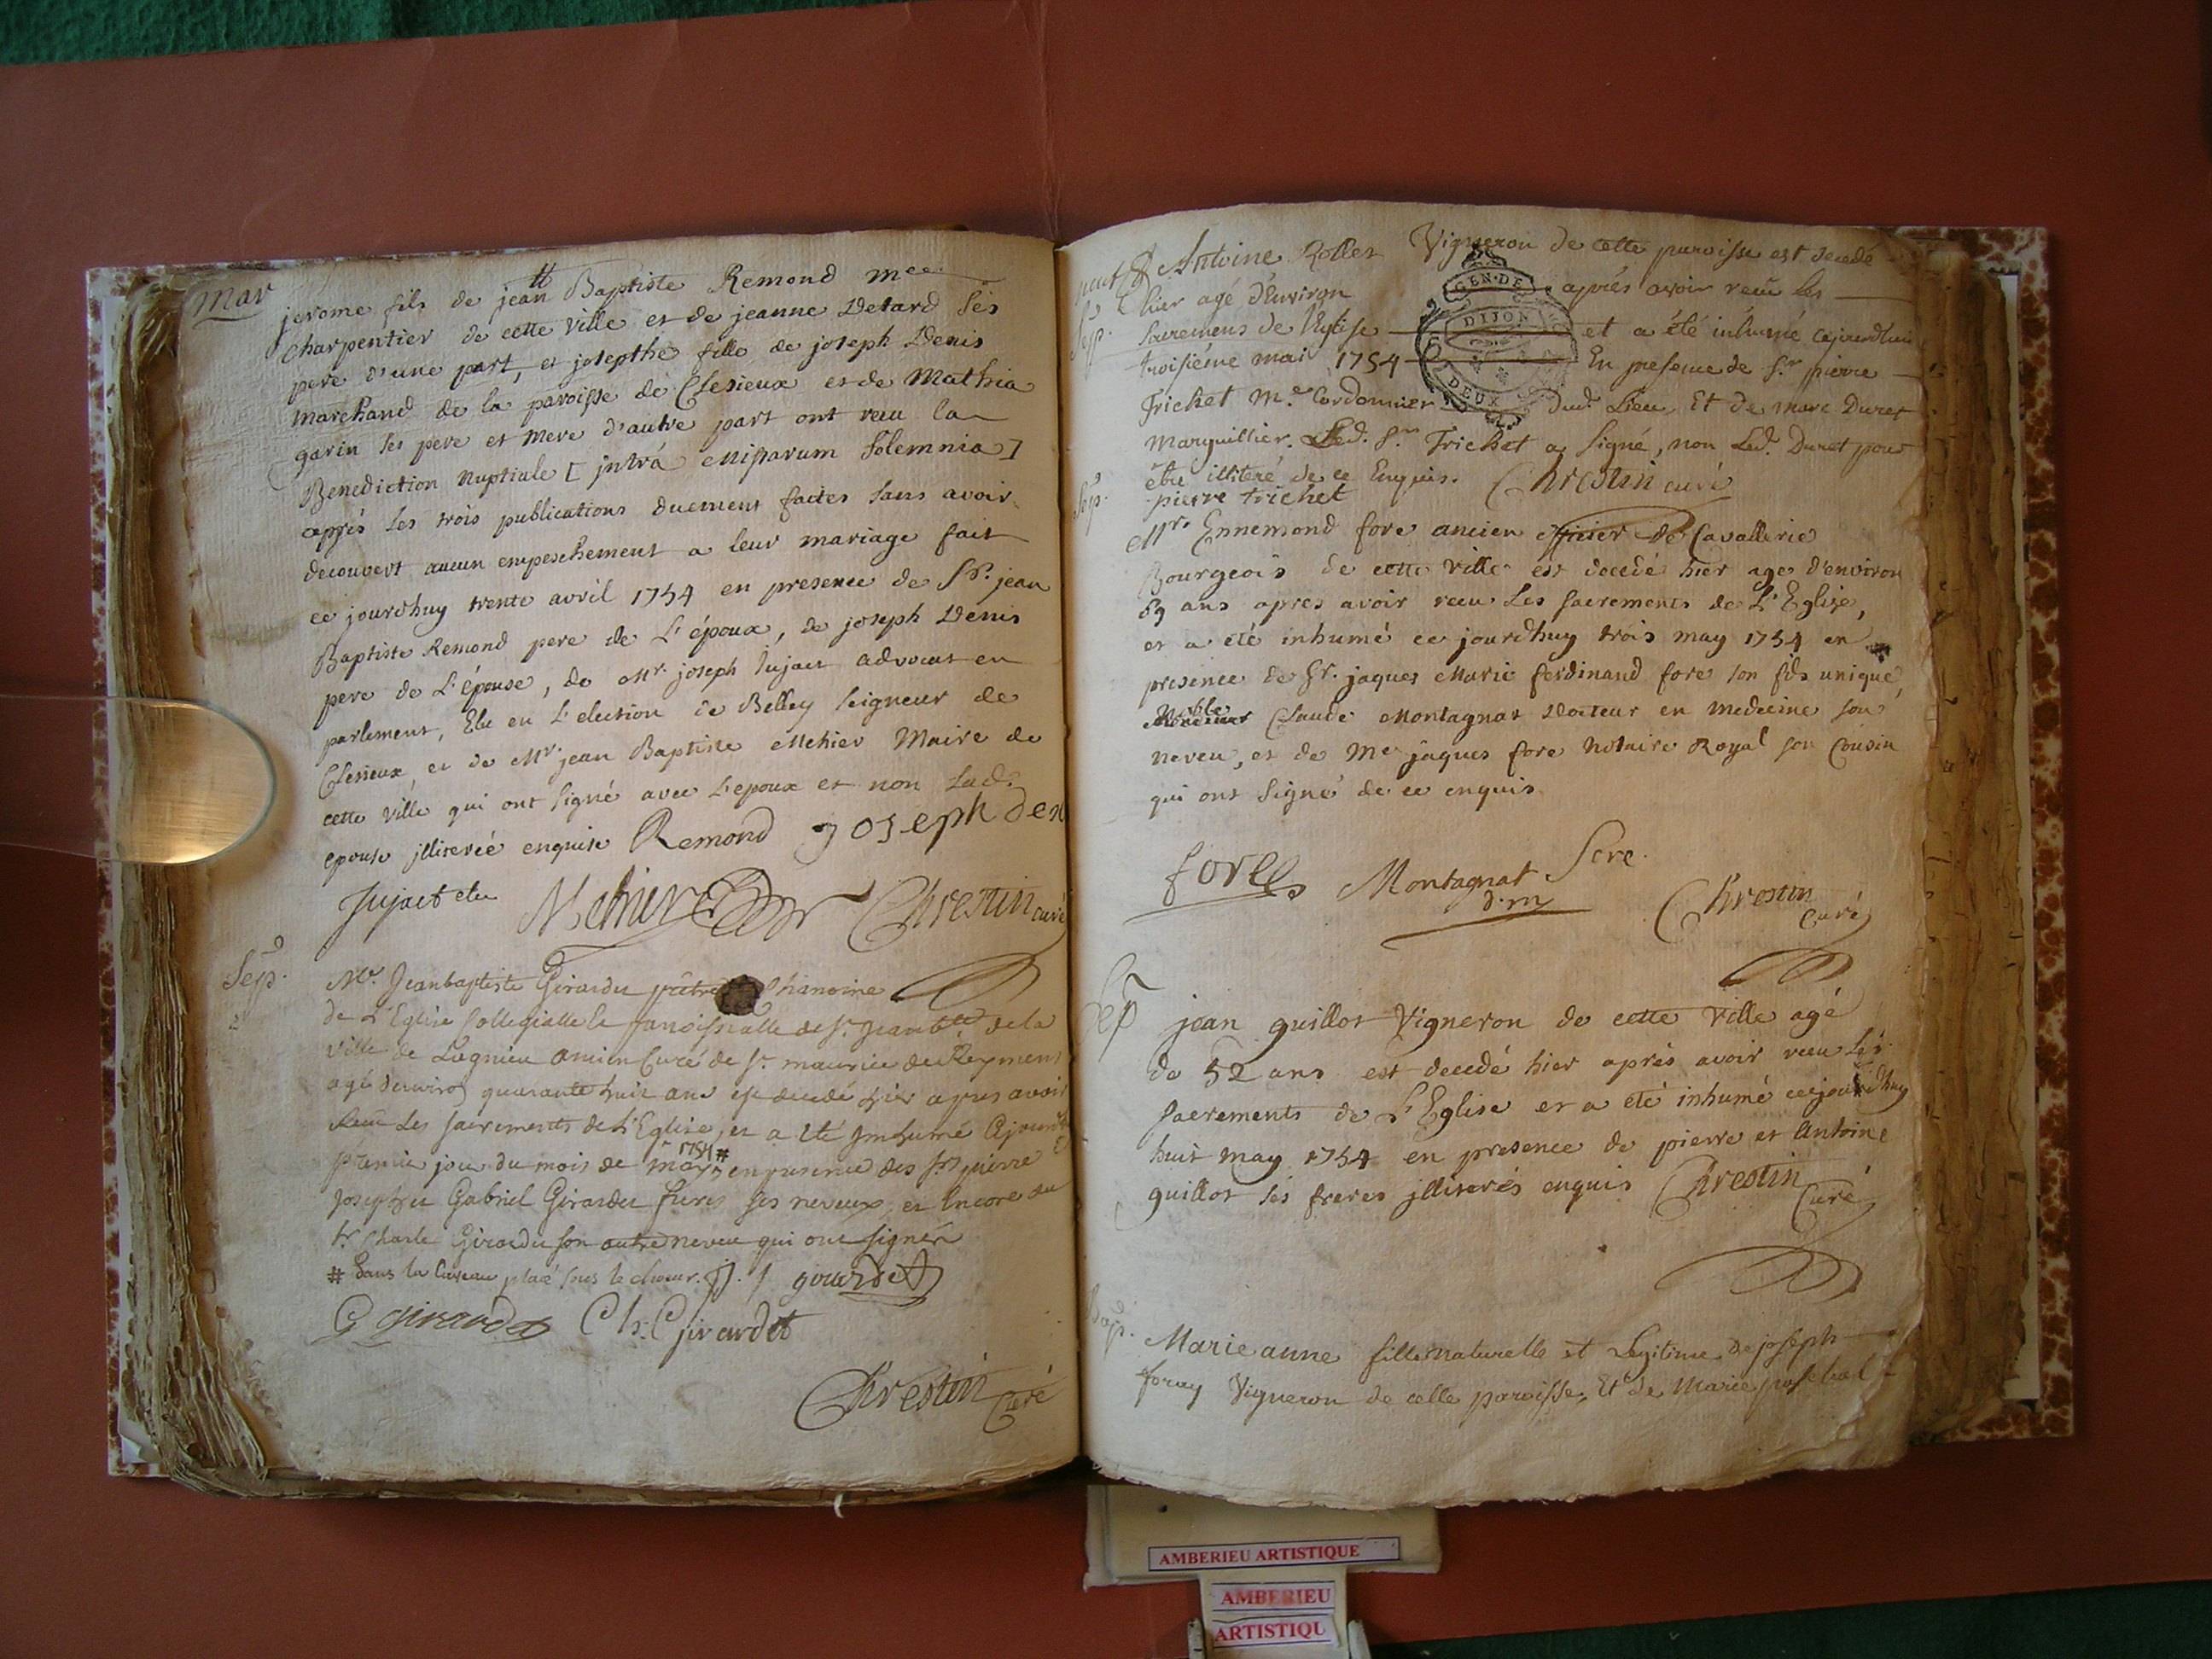 Mar
jerome fils de jean Baptiste Remond mee
charpentier de cette ville et de jeanne Detard ses
pere d'une part, et josepthe fille de joseph Denis
marchand de la paroisse de Clesieux et de Mathia
garin ses pere et mere d'autre part ont receu la
Benediction nuptiale [ jntrà missarum solemnia ]
apprés les trois publications duement faites sans avoir
decouvert aucun empeschement a leur mariage fait
ce jourdhuy trente avril 1754 en presence de Sr. jean
Baptiste Remond pere de L'époux, de joseph Denis
pere de L'épouse, de Mr. joseph jujat advocat en
parlement, Elu en L'election de Belley seigneur de
Clesieux, et de Mr. jean Baptiste Mehier Maire de
cette ville qui ont signé avec L'epoux et non lad.
epouse jlliterée enquise Remond joseph den
jujat elu Mehier Chrestin curé
Sep.
Mr. Jeanbaptiste Girardet prêtre Chanoine
de L'Eglise Collegialle de St. Jean bte de la
ville de Lagnieu ancien Curé de St. maurice de Reymens
agé denviron quarante huit ans est decedé hier apres avoir
Receu Les sacrements de L'Eglise, et a été jnhumé Cejourdh
premier jour du mois de may 1754 # en presence des srs pierre
Joseph et Gabriel Girardet freres ses neveux, et encore du
sr. Charle Girardet son autre neveu qui ont signéz
# dans la Caveau placé sous le choeur. J. J girardet
G girardet Ch. Girardet
Chrestin Curé
Sep.
Antoine Rollet Vigneron de cette paroisse est decedé
hier agé d'Environ aprés avoir receu les
sacremens de l'Eglise et a été inhumé cejourdhui
troisiéme mai 1754 En presence de Sr. pierre
Trichet Me. Cordonnier dud. Lieu Et de marc Duret
marguillier. Led. Sr. Trichet a signé, non Led. Duret pour
être illiteré de ce Enquis. Chrestin curé
pierre trichet
GEN. DE
DIJON
DEUX
Sep.
Mr. Ennemond fore ancien officier de Cavallerie
Bourgeois de cette ville est decedé hier age d'environ
69 ans apres avoir receu Les sacrements de L'Eglise,
et a eté inhumé ce jourdhuy trois may 1754 en
presence de Sr. jaques Marie ferdinand fore son fils unique,
Noble Claude Montagnat Docteur en medecine son
neveu, et de Me jaques fore Notaire Royal son Cousin
qui ont signé de ce enquis
fore Montagnat fore.
d.m
Chrestin curé
Sep
jean guillot Vigneron de cette ville agé
de 52 ans est decedé hier aprés avoir receu Les
sacrements de L'Eglise et a eté inhumé cejourdhuy
huit may 1754 en presence de pierre et Antoine
guillot ses freres jlliterés enquis Chrestin Curé
Bap.
Marie anne fille naturelle et Legitime de joseph
foray Vigneron de cette paroisse, Et de Marie
AMBERIEU ARTISTIQUE
AMBERIEU
ARTISTIQU